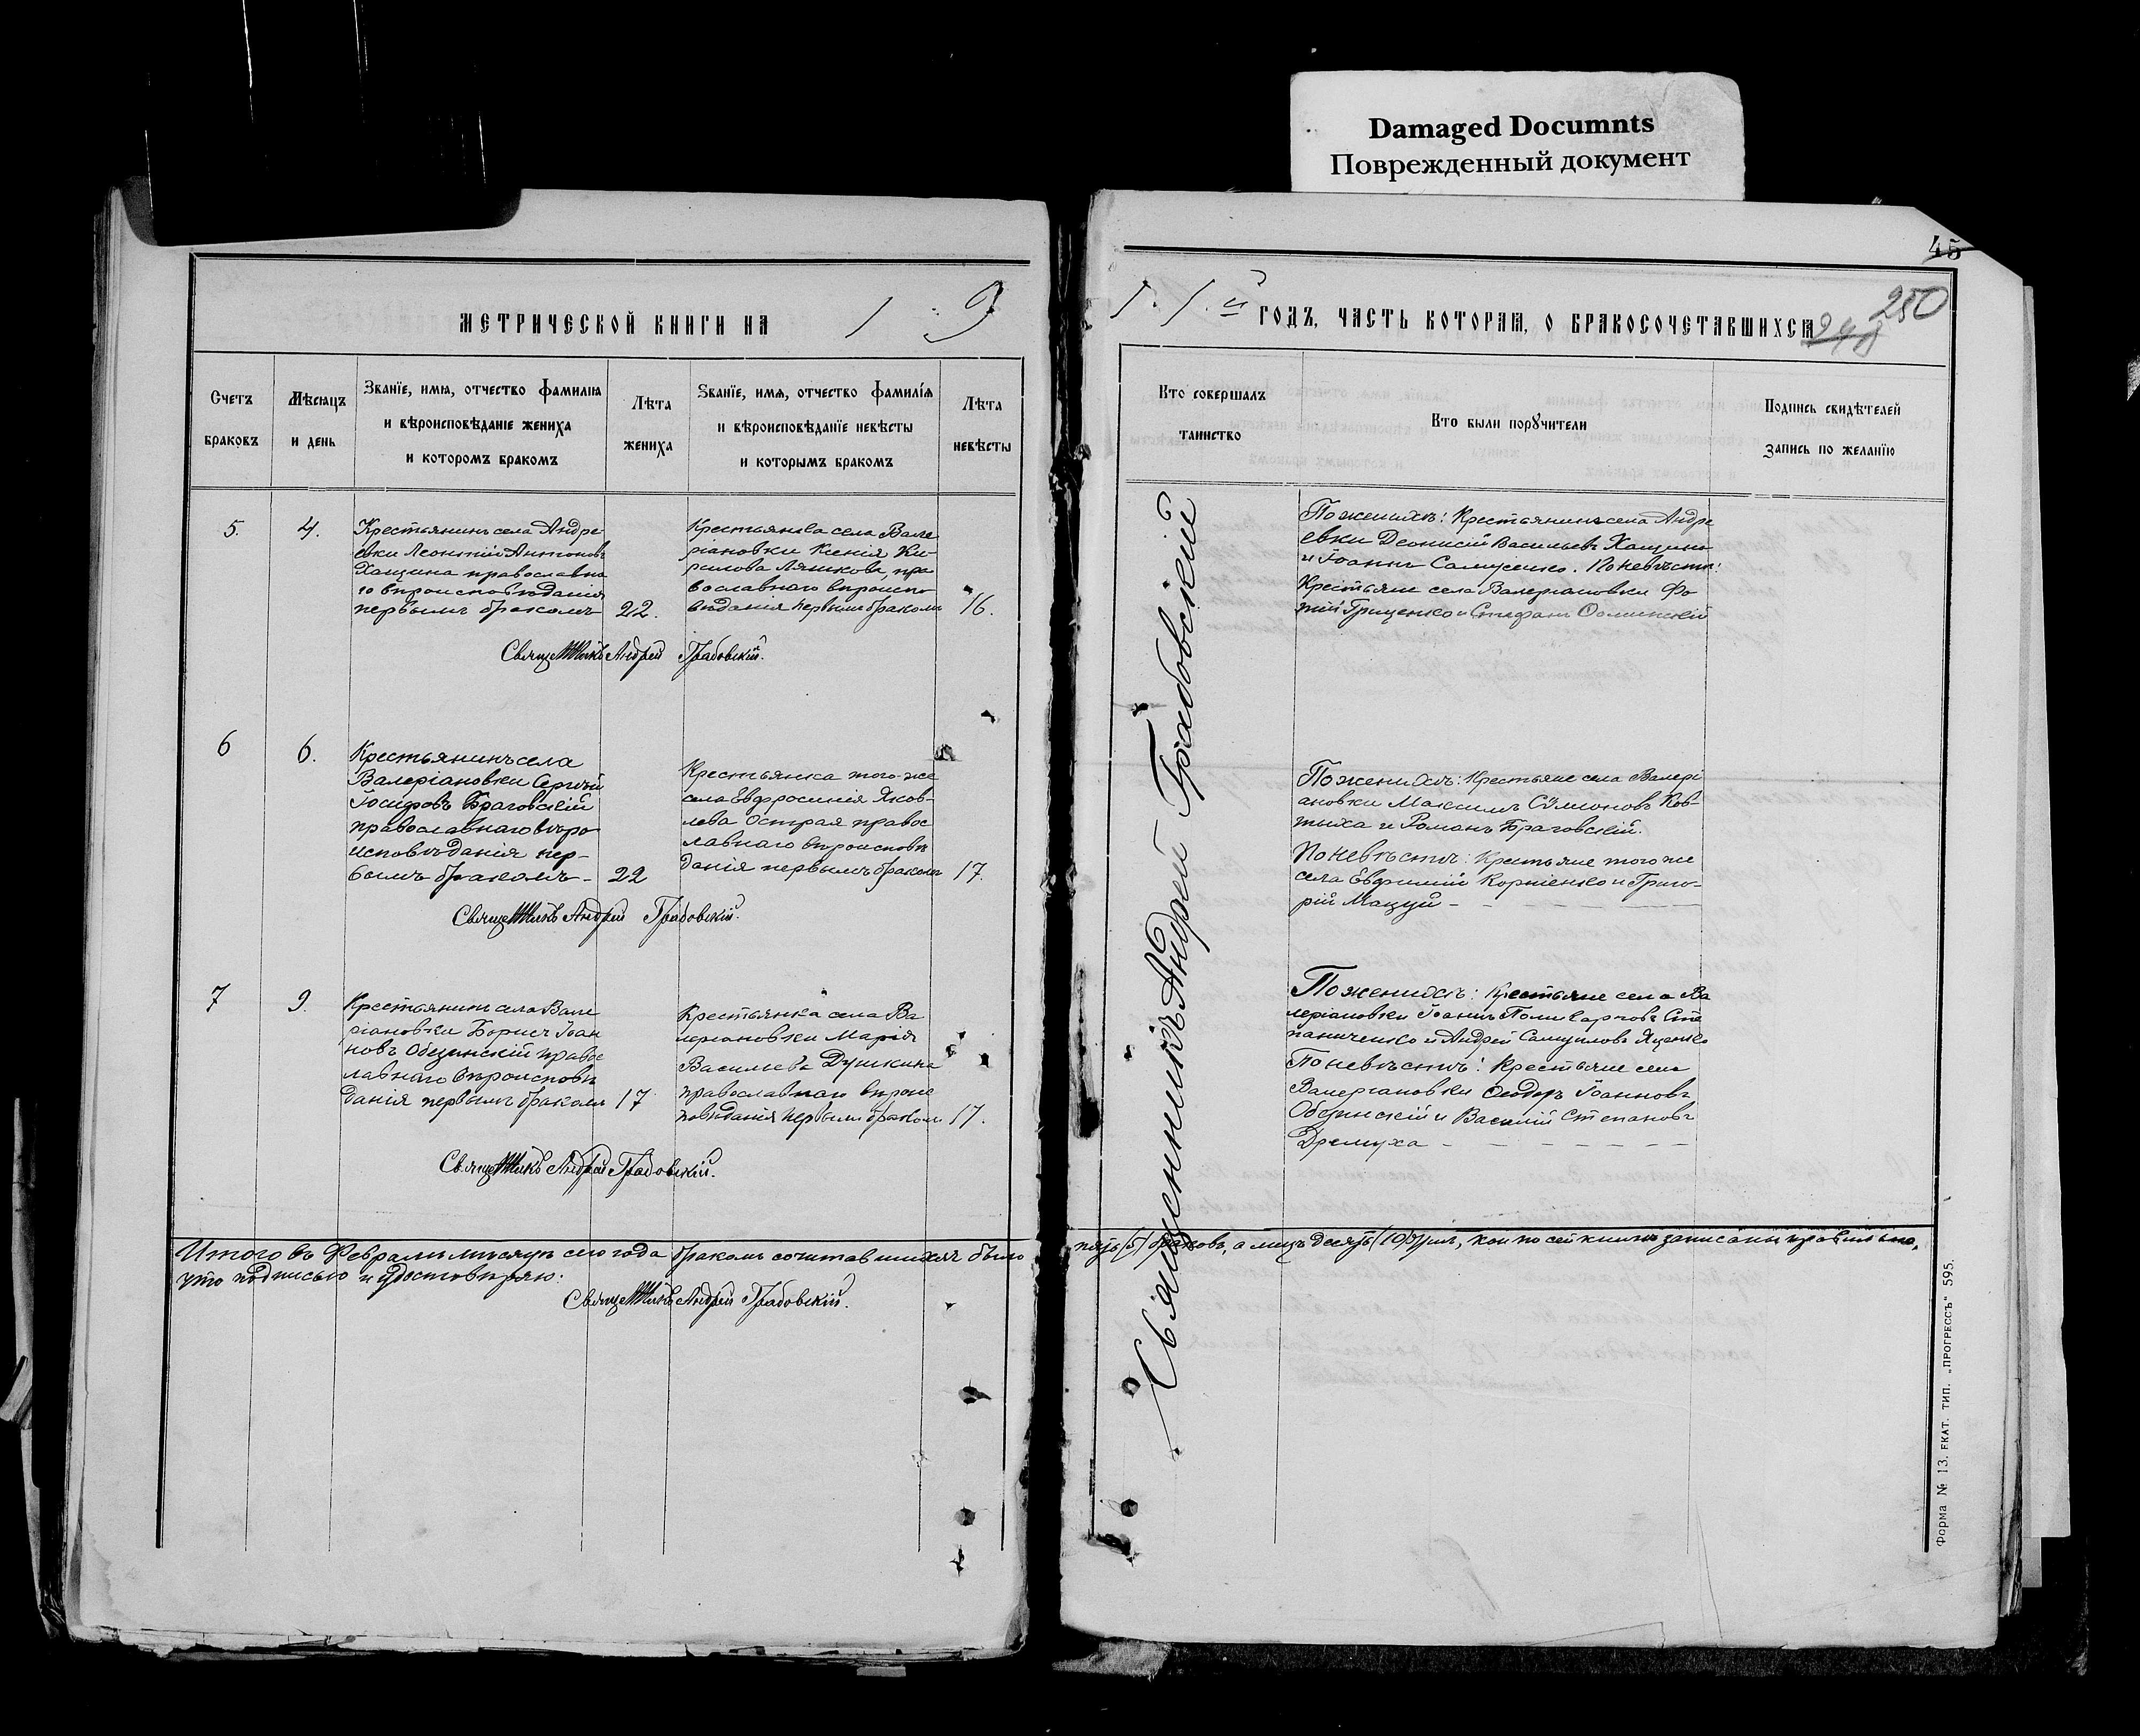 Damaged Documnts
Поврежденный документ
45
МЕТРИЧЕСКОЙ КНИГИ НА 1 9
1.1.й ГОДЪ, ЧАСТЬ КОТОРАЯ, О БРАКОСОЧЕТАВШИХСЯ
250
Счетъ
браковъ
Мѣсяцъ
и день
Званіе, имя, отчество фамилія
и вѣроисповѣданіе жениха
и которомъ бракомъ
Лѣта
жениха
Званіе, имя, отчество фамилія
и вѣроисповѣданіе невѣсты
и которымъ бракомъ
Лѣта
невѣсты
Кто совершалъ
таинство
Кто были поручители
Подпись свидѣтелей
запись по желанію
5.
4.
Крестьянинъ села Андре
евки Леонтій Антоновъ
Хащина православна
го вѣроисповѣданія
первымъ бракомъ
22.
Крестьянка села Вале
ріановки Ксенія Ки-
рилова Ляшкова, пра
вославнаго вѣроиспо
вѣданія первымъ бракомъ
16.
Священникъ Андрей Градовскій.
По женихѣ: Крестьянинъ села Андре
евки Деонисій Васильевъ Хащина
и Іоаннъ Самусенко. По невѣстѣ:
Крестьяне села Валеріановки Фо
тій Гриценко и Стефанъ Осминскій
6
6.
Крестьянинъ села
Валеріановки Сергѣй
Іосифовъ Браговскій
православнаго вѣро
исповѣданія пер-
вымъ бракомъ-
22
Крестьянка того-же
села Евфросинія Яков-
лева Острая правос
лавнаго вѣроисповѣ
данія первымъ бракомъ
17.
Священникъ Андрей Градовскій.
По женихѣ: Крестьяне села Валері
ановки Максимъ Сѵмеоновъ Ков-
тыха и Романъ Браговскій.
По невѣстѣ: Крестьяне того же
села Евфимій Корніенко и Григо-
рій Мацуй -
7
9.
Крестьянинъ села Вале
ріановки Борисъ Іоан
новъ Обезинскій правос
лавнаго вѣроисповѣ
данія первымъ бракомъ
17
Крестьянка села Ва
леріановки Марія
Васильева Душкина
православнаго вѣроис
повѣданія первымъ бракомъ
17.
Священникъ Андрей Градовскій.
По женихѣ: Крестьяне села Ва
леріановки Іоаннъ Поликарповъ Сте
паниченко и Андрей Самуиловъ Яценко
По невѣстѣ: Крестьяне села
Валеріановки Ѳеодоръ Іоанновъ
Обезинскій и Василій Степановъ
Дремуха -
Священникъ Андрей Градовскій
Итого въ Февралѣ мѣсяцѣ сего года бракомъ сочетавшихся было пять (5) браковъ, а лицъ десять (10) душъ, кои по сей книгѣ записаны правильно,
что подписью и удостовѣряю:
Священникъ Андрей Градовскій.
Форма № 13. ЕКАТ. ТИП. „ПРОГРЕССЪ" 595.